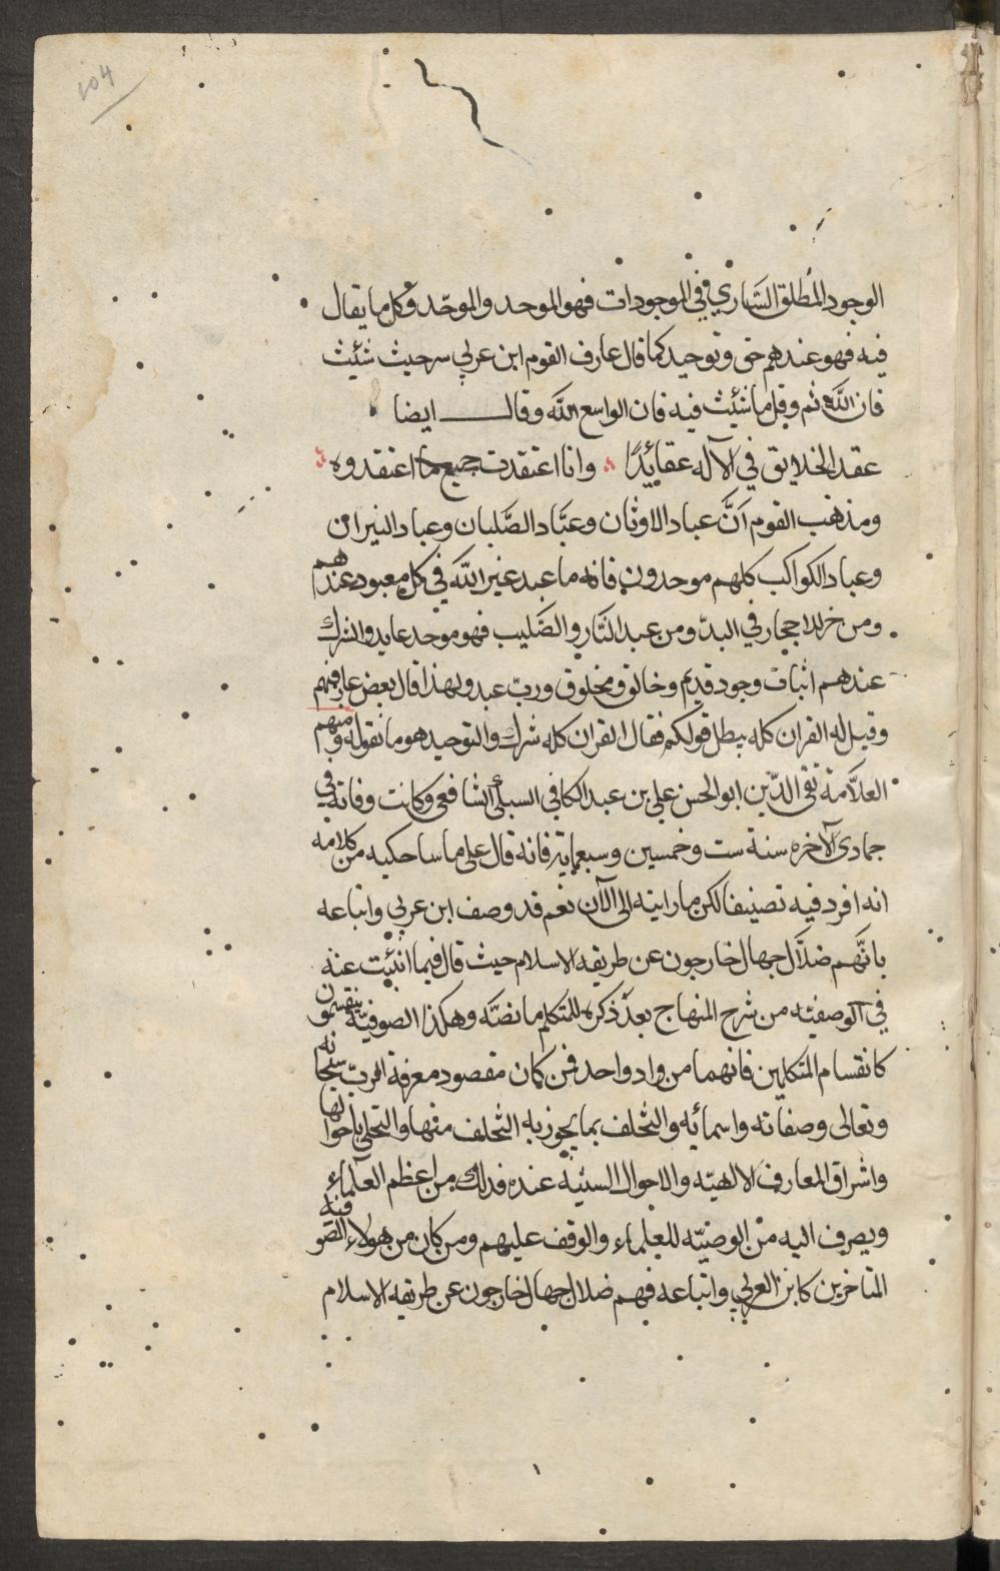 104
الوجود المطلق الساري في الموجودات فهو الموحد والموحّد وكل ما يقال
فيه فهو عندهم حق وتوحيد كما قال عارف القوم ابن عربي سر حيث شئت
فان الله ثم وقل ما شئت فيه فان الواسع الله وقال ايضا
عقد الخلايق في الآله عقائدًا وانا اعتقدت جميع ما اعتقدوه
ومذهب القوم أنَّ عباد الاوثان وعبَّاد الصّلبان وعباد النيران
وعباد الكواكب كلهم موحدون فانه ما عبد غير الله في كل معبود عندهم
ومن خر للاحجار في البدّ ومن عبد النّار والصّليب فهو موحد عابد والشرك
عندهم اثبات وجود قديم وخالق ومخلوق ورب عبد ولهذا قال بعض عارفيهم
وقيل له القران كله يبطل قولكم فقال القران كله شرك والتوحيد هو ما نقوله ومنهم
العلاّمة تقى الدّين ابو الحسن علي بن عبد الكافي السبكي الشافعي وكانت وفاته في
جمادى الآخره سنة ست وخمسين وسبعماية فانه قال على ما ساحكيه من كلامه
انه افرد فيه تصنيفا لكن ما رايته الى الآن نعم قد وصف ابن عربي واتباعه
بانَّهم ضلاَّل جهال خارجون عن طريقه الاسلام حيث قال فيما انبئت عنه
في الوصيه من شرح المنهاج بعد ذكره للمتكلم ما نصّه وهكذا الصوفية ينقسمون
كانقسام المتكلمين فانهما من واد واحد فمن كان مقصوده معرفة الرب سبحانه
وتعالى وصفاته واسمائه والتخلف بما يجوز به التخلف منها والتحلي باحوالها
واشراق المعارف الالهيّه والاحوال السنيّة عنده فذلك من اعظم العلماء
ويصرف اليه من الوصيّه للعلماء والوقف عليهم ومن كان من هولاء الصوفيه
المتاخرين كابن العربي واتباعه فهم ضلال جهال خارجون عن طريقه الاسلام